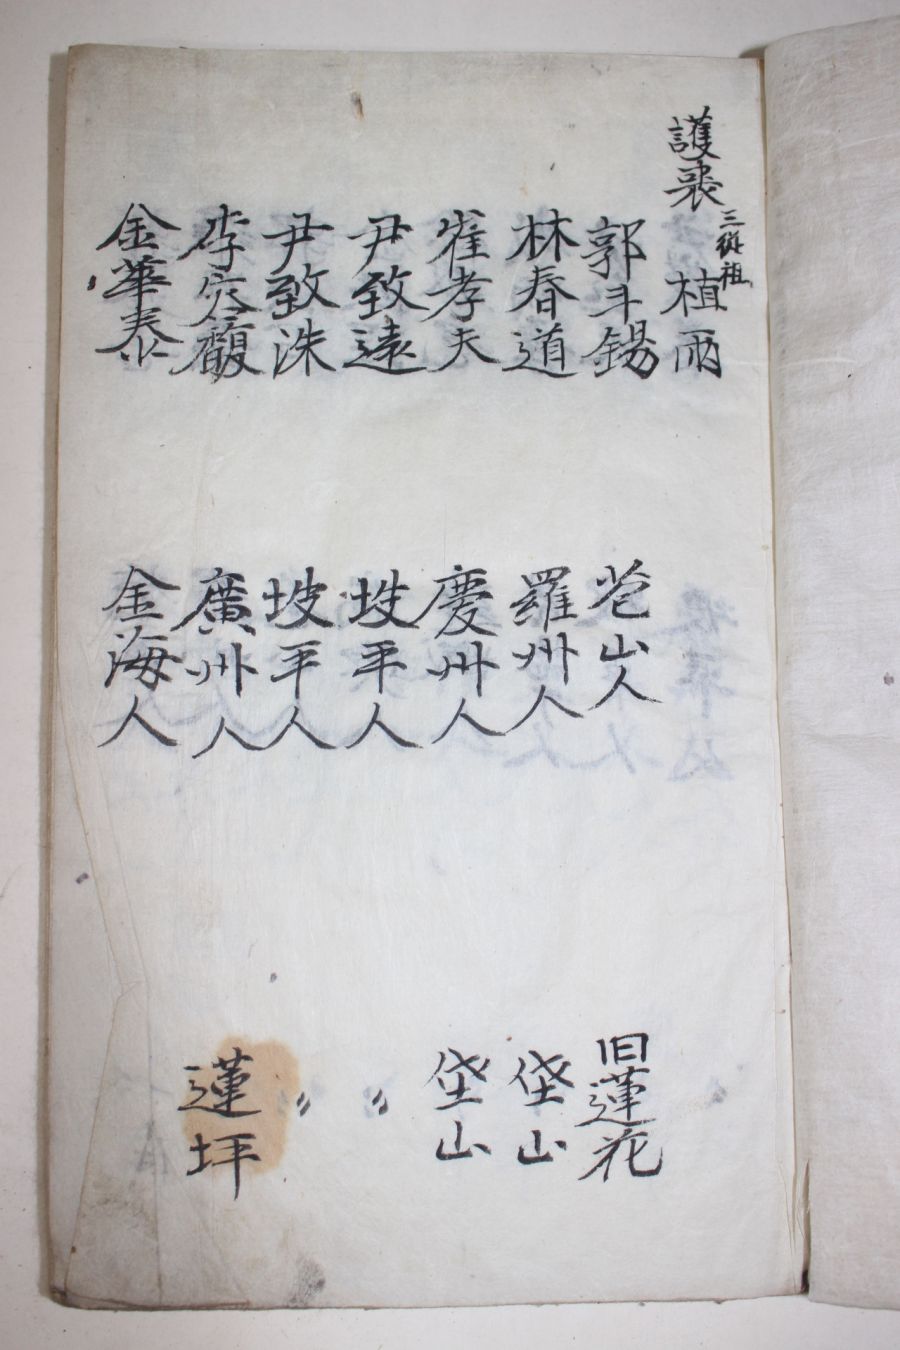 護喪 三從祖 植雨
郭斗錫 苞山人 旧蓮花
林春道 羅州人 垈山
崔孝夫 慶州人 垈山
尹致遠 坡平人 〃
尹致洙 坡平人 〃
李容馥 廣州人 蓮坪
金華泰 金海人